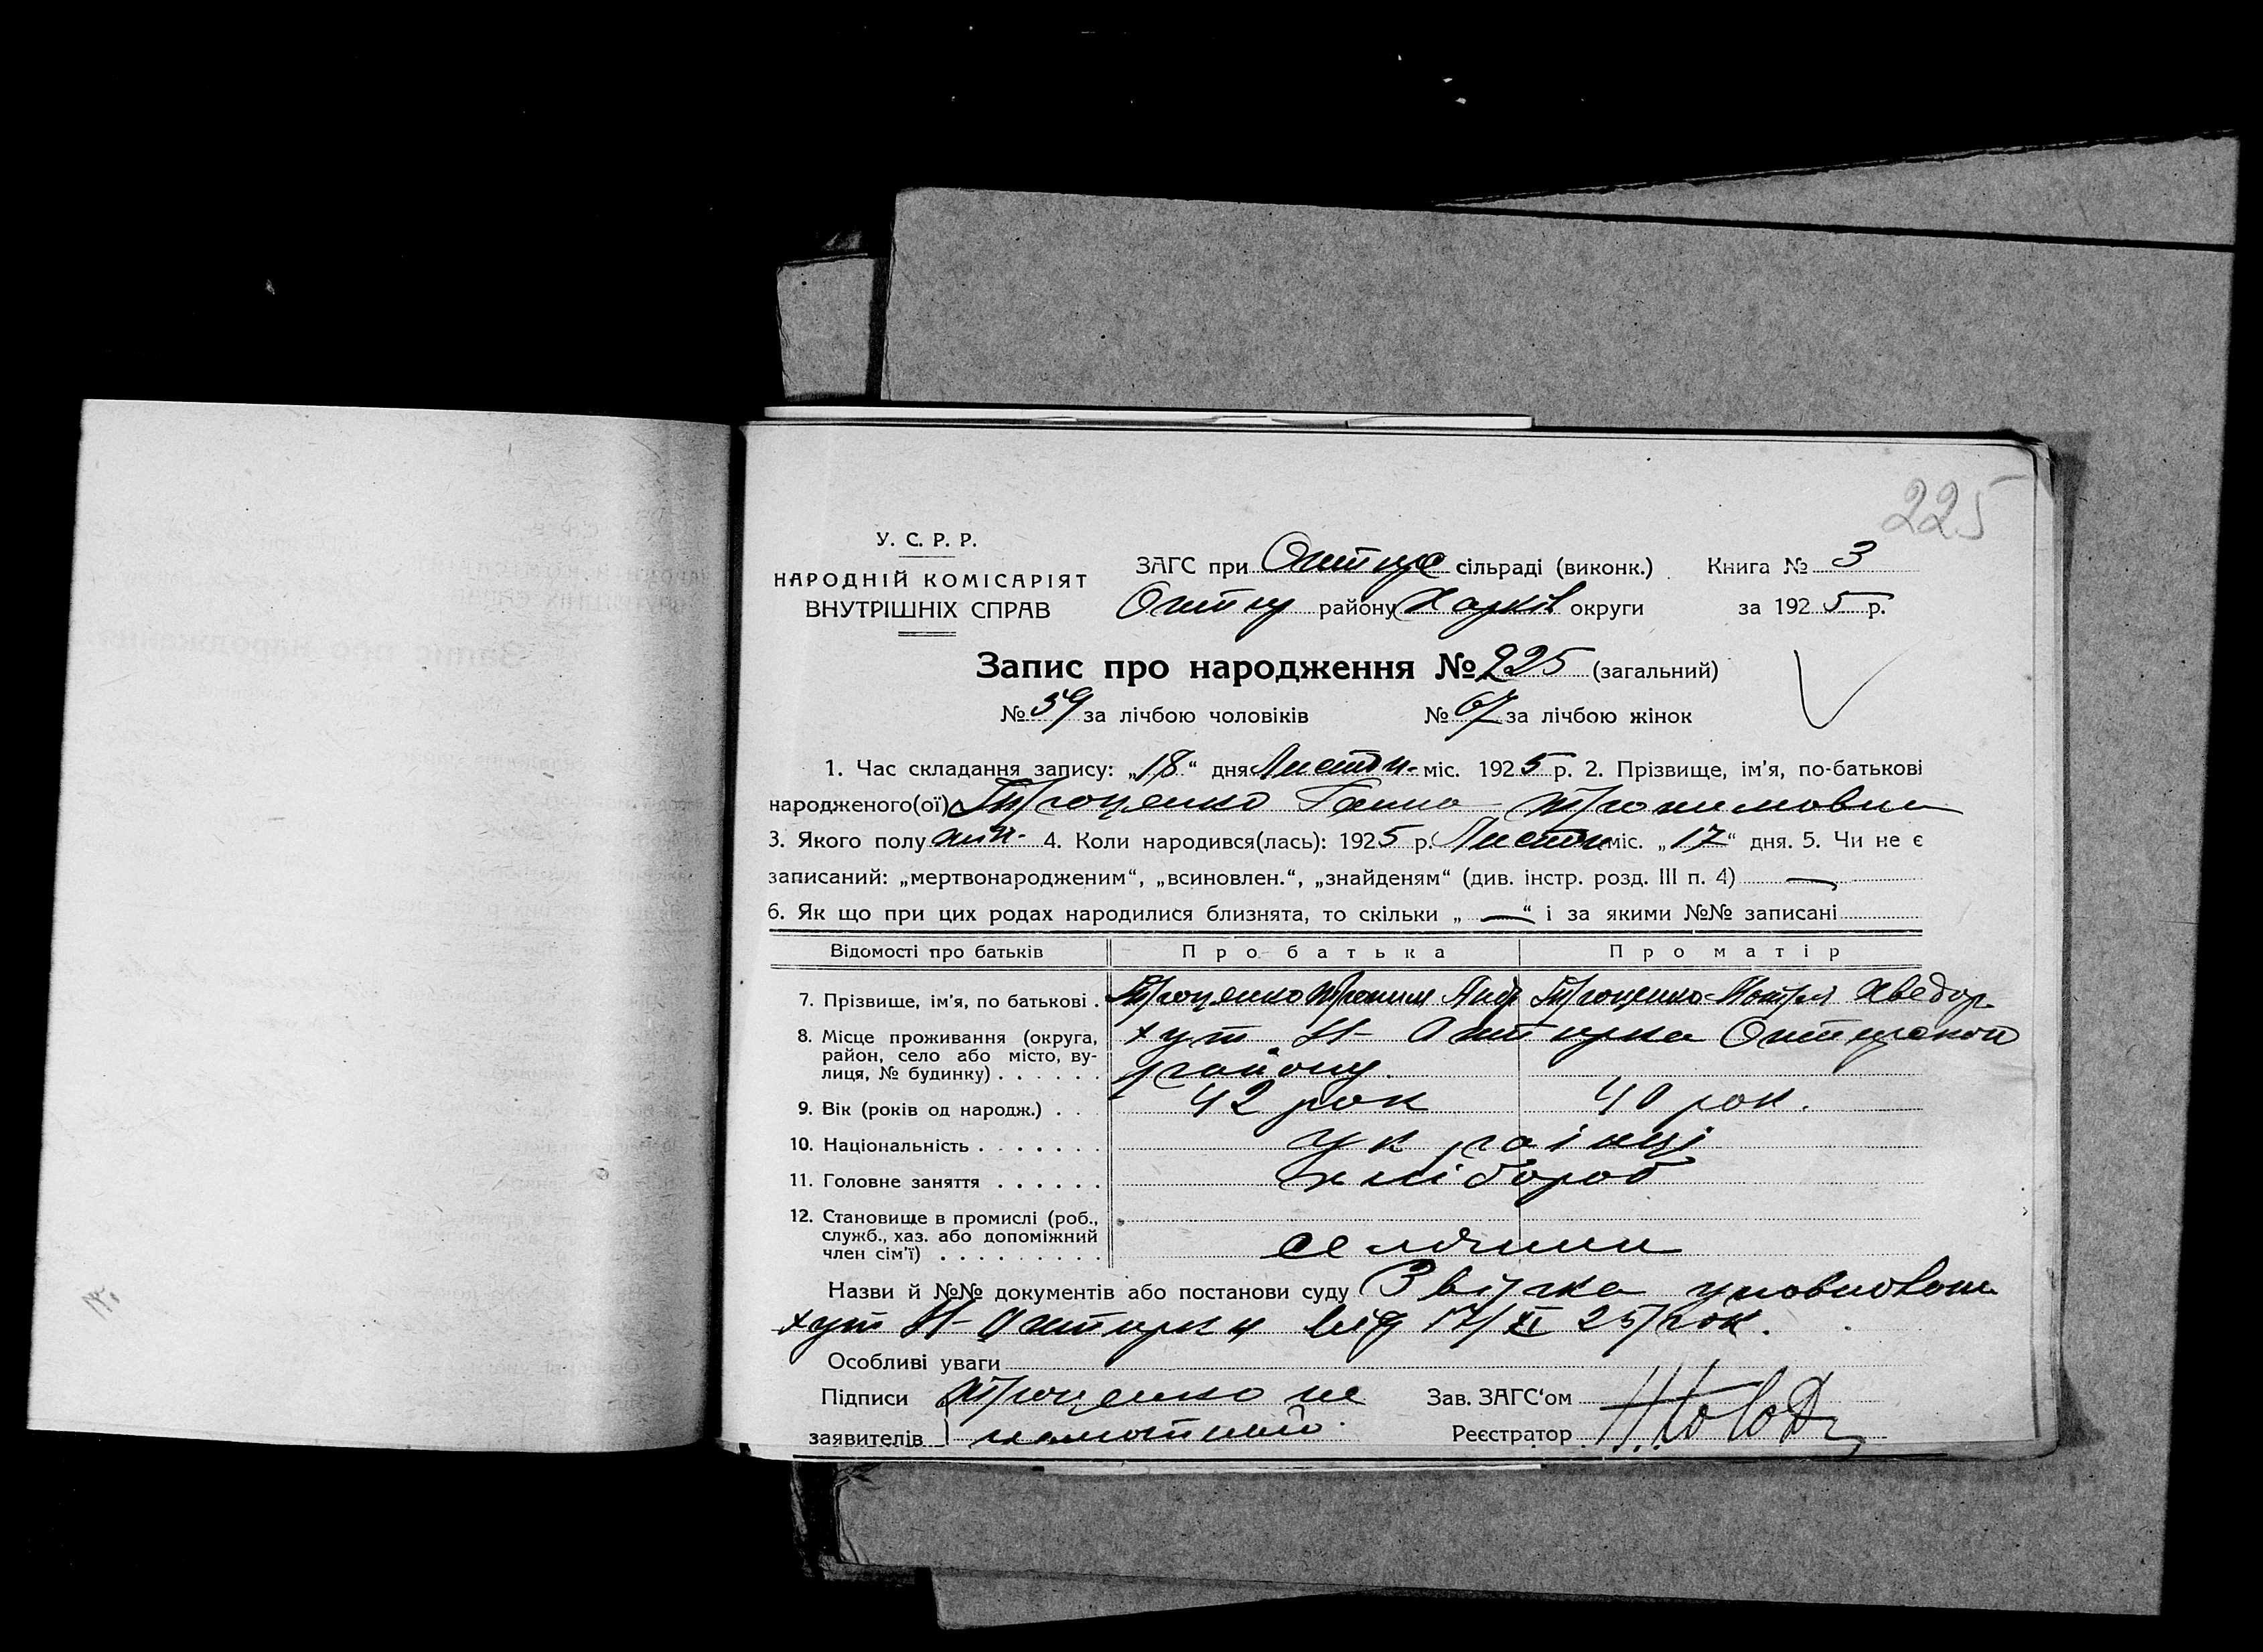 225
У. С. Р. Р.
НАРОДНІЙ КОМІСАРІЯТ
ВНУТРІШНІХ СПРАВ
ЗАГС при сільраді (виконк.) Книга № 3
району Харків округи за 1925 р.
Запис про народження № 225 (загальний)
№ 59 за лічбою чоловіків № 67 за лічбою жінок
1. Час складання запису: „18“ дня Листоп. міс. 1925 р. 2. Прізвище, ім'я, по-батькові
народженого(ої) Троценко Ганна Трохимовна
3. Якого полу жін. 4. Коли народився(лась): 1925 р. Листоп міс. „17“ дня. 5. Чи не є
записаний: „мертвонародженим“, „всиновлен.“, „знайденям“ (див. інстр. розд. III п. 4) —
6. Як що при цих родах народилися близнята, то скільки „ — “ і за якими №№ записані
Відомості про батьків Про батька Про матір
7. Прізвище, ім'я, по батькові . Троценко Трохим Анд Троценко Мотря Хведор.
8. Місце проживання (округа, район, село або місто, вулиця, № будинку) . . . . . . хут.
району
9. Вік (років од народж.) . . 42 рок 40 рок.
10. Національність . . . . . . . українці
11. Головне заняття . . . . . . хлібороб
12. Становище в промислі (роб., служб., хаз. або допоміжний член сім'ї) . . . . . . . . . селянин
Назви й №№ документів або постанови суду Звістка уповновош
хут від 17/XI 25 рок.
Особливі уваги
Підписи Троценко не Зав. ЗАГС'ом
заявителів Реєстратор